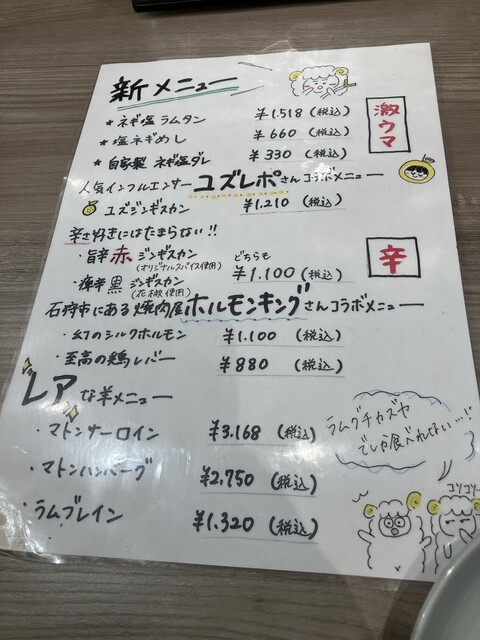 新メニュー
激ウマ
★ ネギ塩ラムタン ¥1.518 (税込)
★ 塩ネギめし ¥660 (税込)
★ 自家製 ネギ塩ダレ ¥330 (税込)
人気インフルエンサー ユズレポさんコラボメニュー
ユズジンギスカン ¥1.210 (税込)
辛さ好きにはたまらない!!
辛
・旨辛 赤 ジンギスカン どちらも
(オリジナルスパイス使用)
¥1.100 (税込)
・痺辛 黒 ジンギスカン
(花椒使用)
石狩市にある焼肉屋ホルモンキングさんコラボメニュー
・幻のシルクホルモン ¥1.100 (税込)
・至高の鶏レバー ¥880 (税込)
レアな羊メニュー
・マトンサーロイン ¥3.168 (税込)
・マトンハンバーグ ¥2.750 (税込)
・ラムブレイン ¥1.320 (税込)
ラムグチカズヤ
でしか食べれない…!!
コソコソ